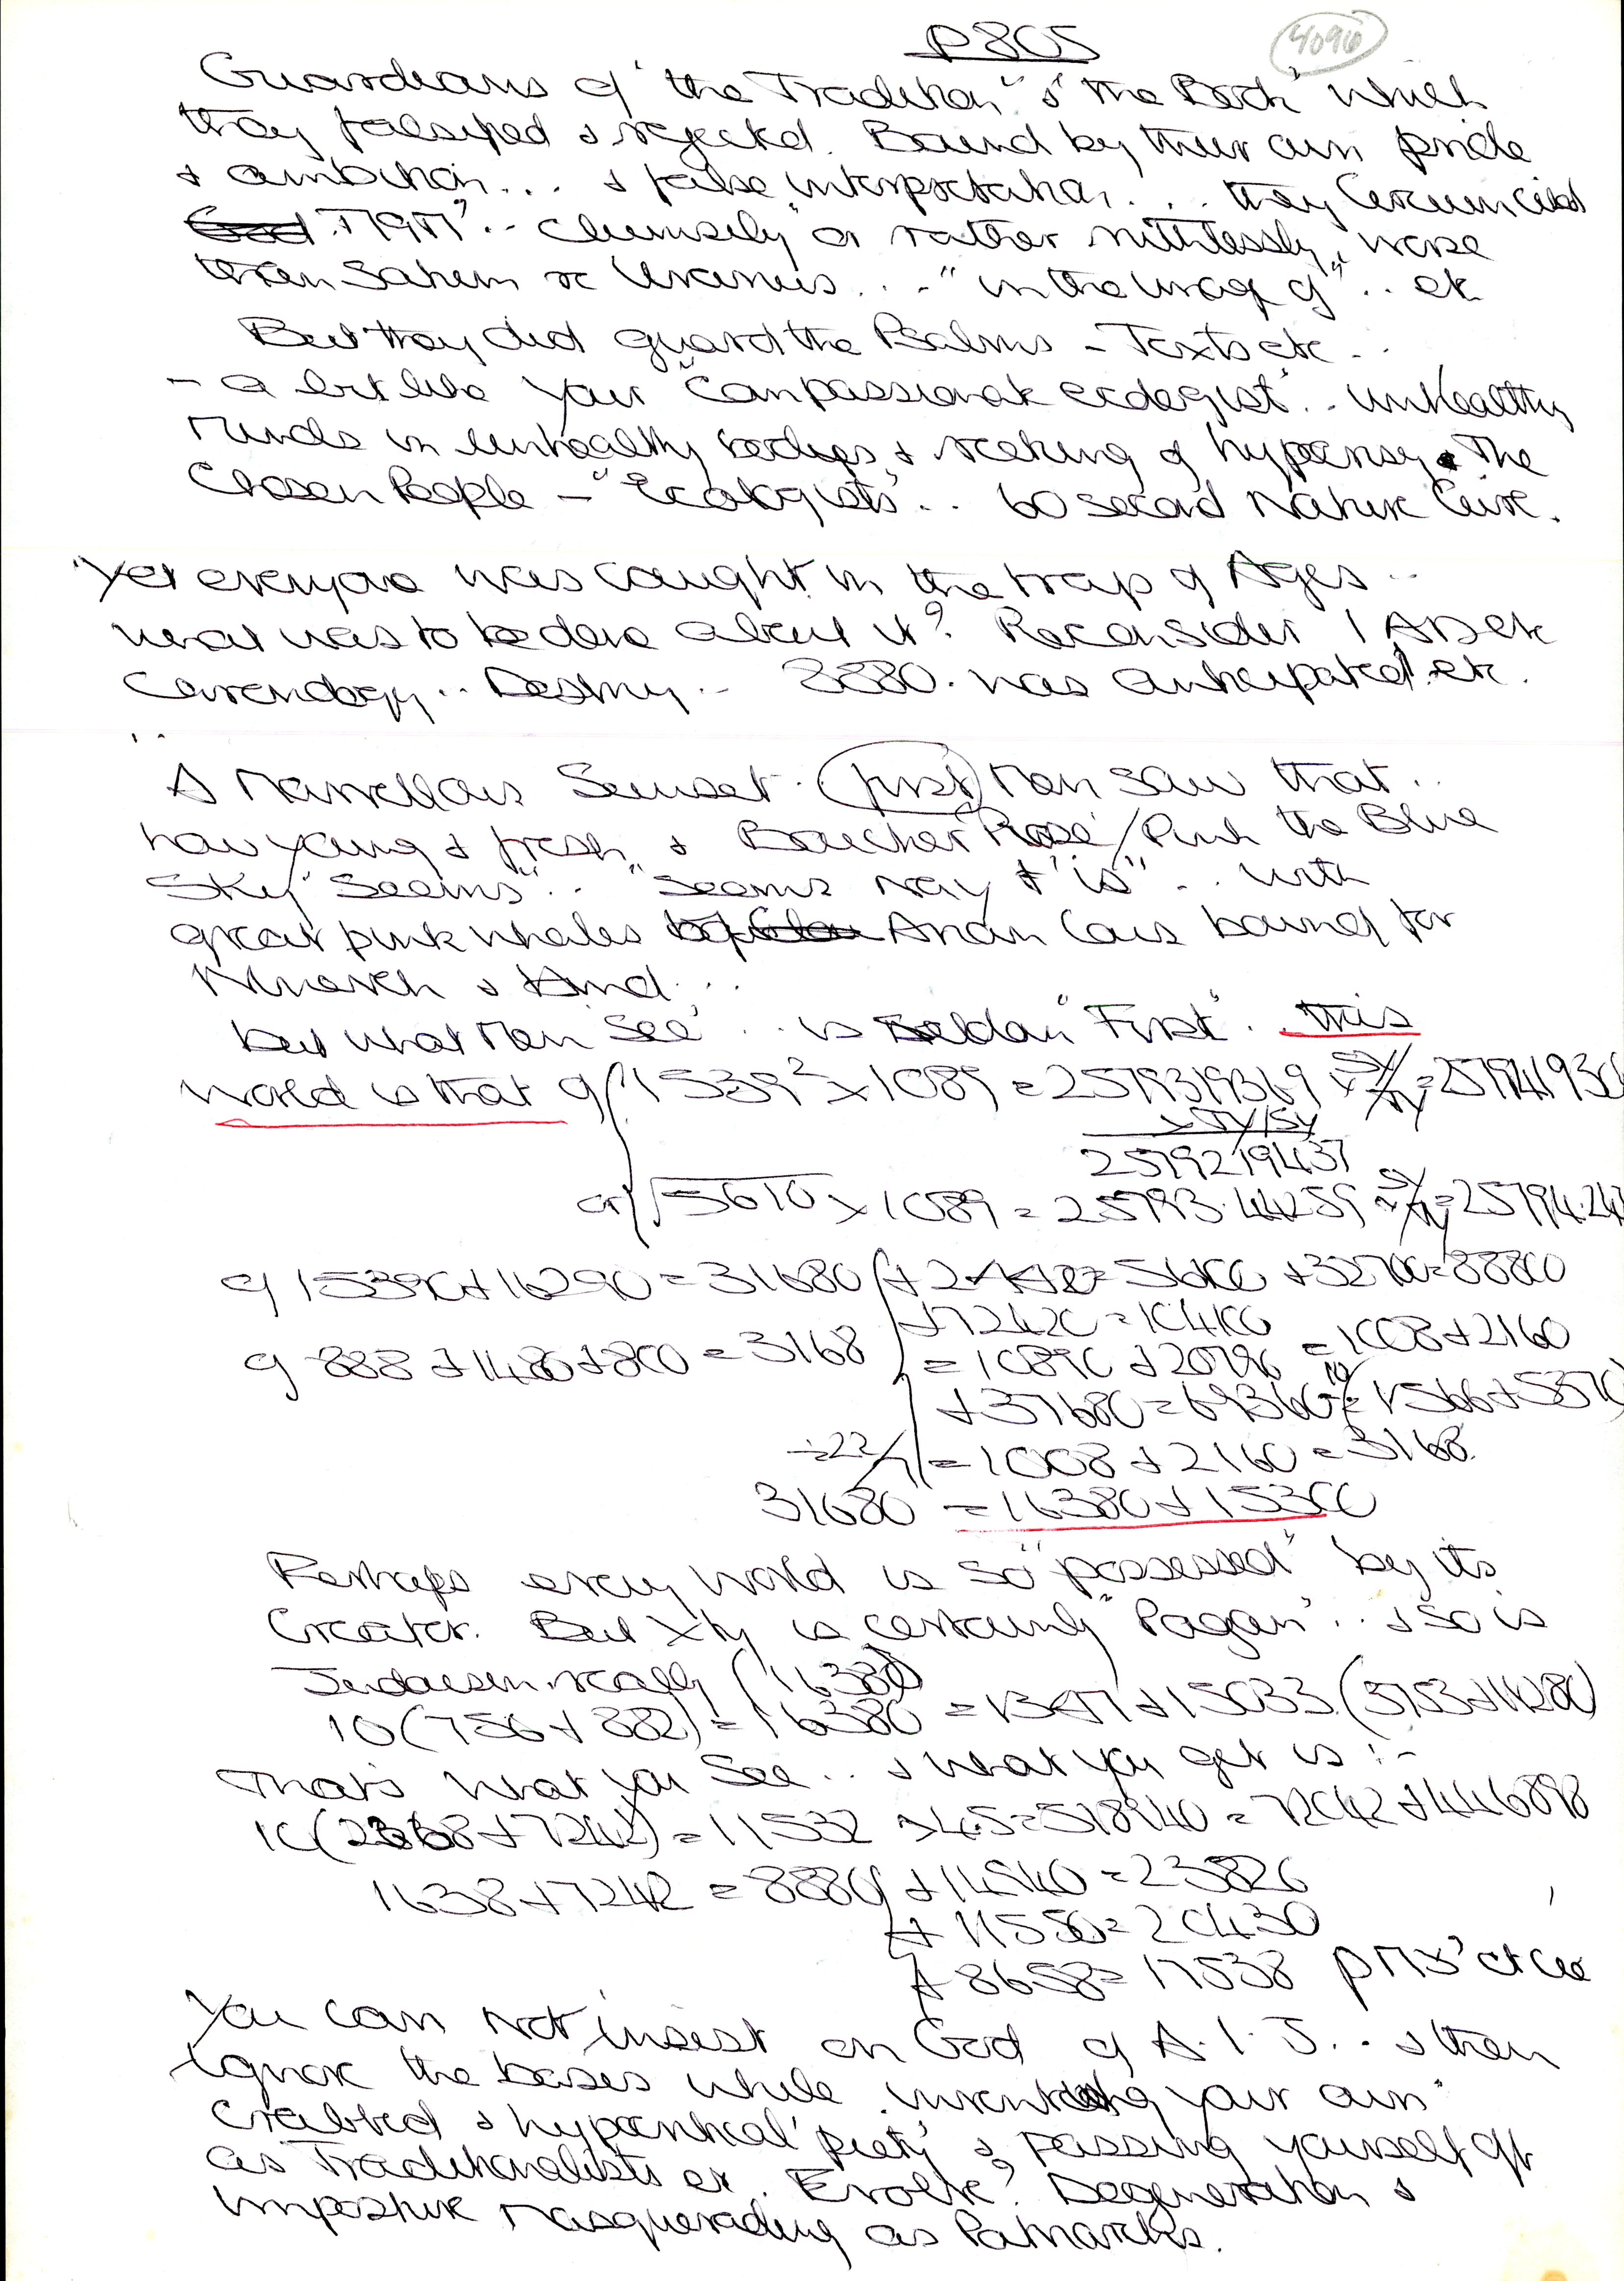 P 805
4096
Guardians of "the Tradition" & "the Book" which
they falsified & rejected. Bound by their own pride
& ambition... & false interpretation... they circumcised
God ... clumsily" or rather ruthlessly, worse
than Saturn or Uranus... "in the image of".. etc
But they did guard the Psalms - Texts etc..
- a bit like your "Compassionate ecologist".. unhealthy
minds in unhealthy bodies & reeking of hypocrisy. The
Chosen People - "Ecologists".. 60 second Nature Cure.
Yet everyone was caught in the trap of Ages..
what was to be done about it? Reconsider etc
.. Destiny.. 8880. was anticipated. etc.
A Marvellous Sunset.. (first) Man saw that..
how young & fresh & Boucher Rose/Pink the Blue
Sky "seems".. "Seems nay & "is".. with
great pink whales bound for
& ...
but what Man "See".. is Seldom "First".. this
world is that of 1539² x 1089 = 2579319369
2579219437
or √5610 x 1089 = 25793.44259 = 25794.24
of 15390 + 16290 = 31680 + 32700 = 88800
+ 72420 = 104100
of 888 + 1480 + 800 = 3168 = 1008 + 2160
= 10890 + 20790
+ 37680 = 69360
÷ 22/7 = 1008 + 2160 = 3168
31680 = 16380 + 15300
Perhaps every world is so "possessed" by its
Creator. But Xty is certainly "Pagan".. & so is
Judaism really (16380)
10(756 + 882) = 16380 = 1347 + 15033 (3753 + 11280)
That's what you see.. & what you get is :-
+ 7242) = 11532 x 45 = 518940 = 72042 + 446898
1638 + 7242 = 8880 + 14940 = 23826
+ 11550 = 20430
+ 8658 = 17538
You can not insist on God of A. I. J... & then
ignore the bases while inventing your own
crabbed & hypocritical "piety" & passing yourself off
as Traditionalists etc. Evolve? Degeneration &
imposture masquerading as Patriarchs.